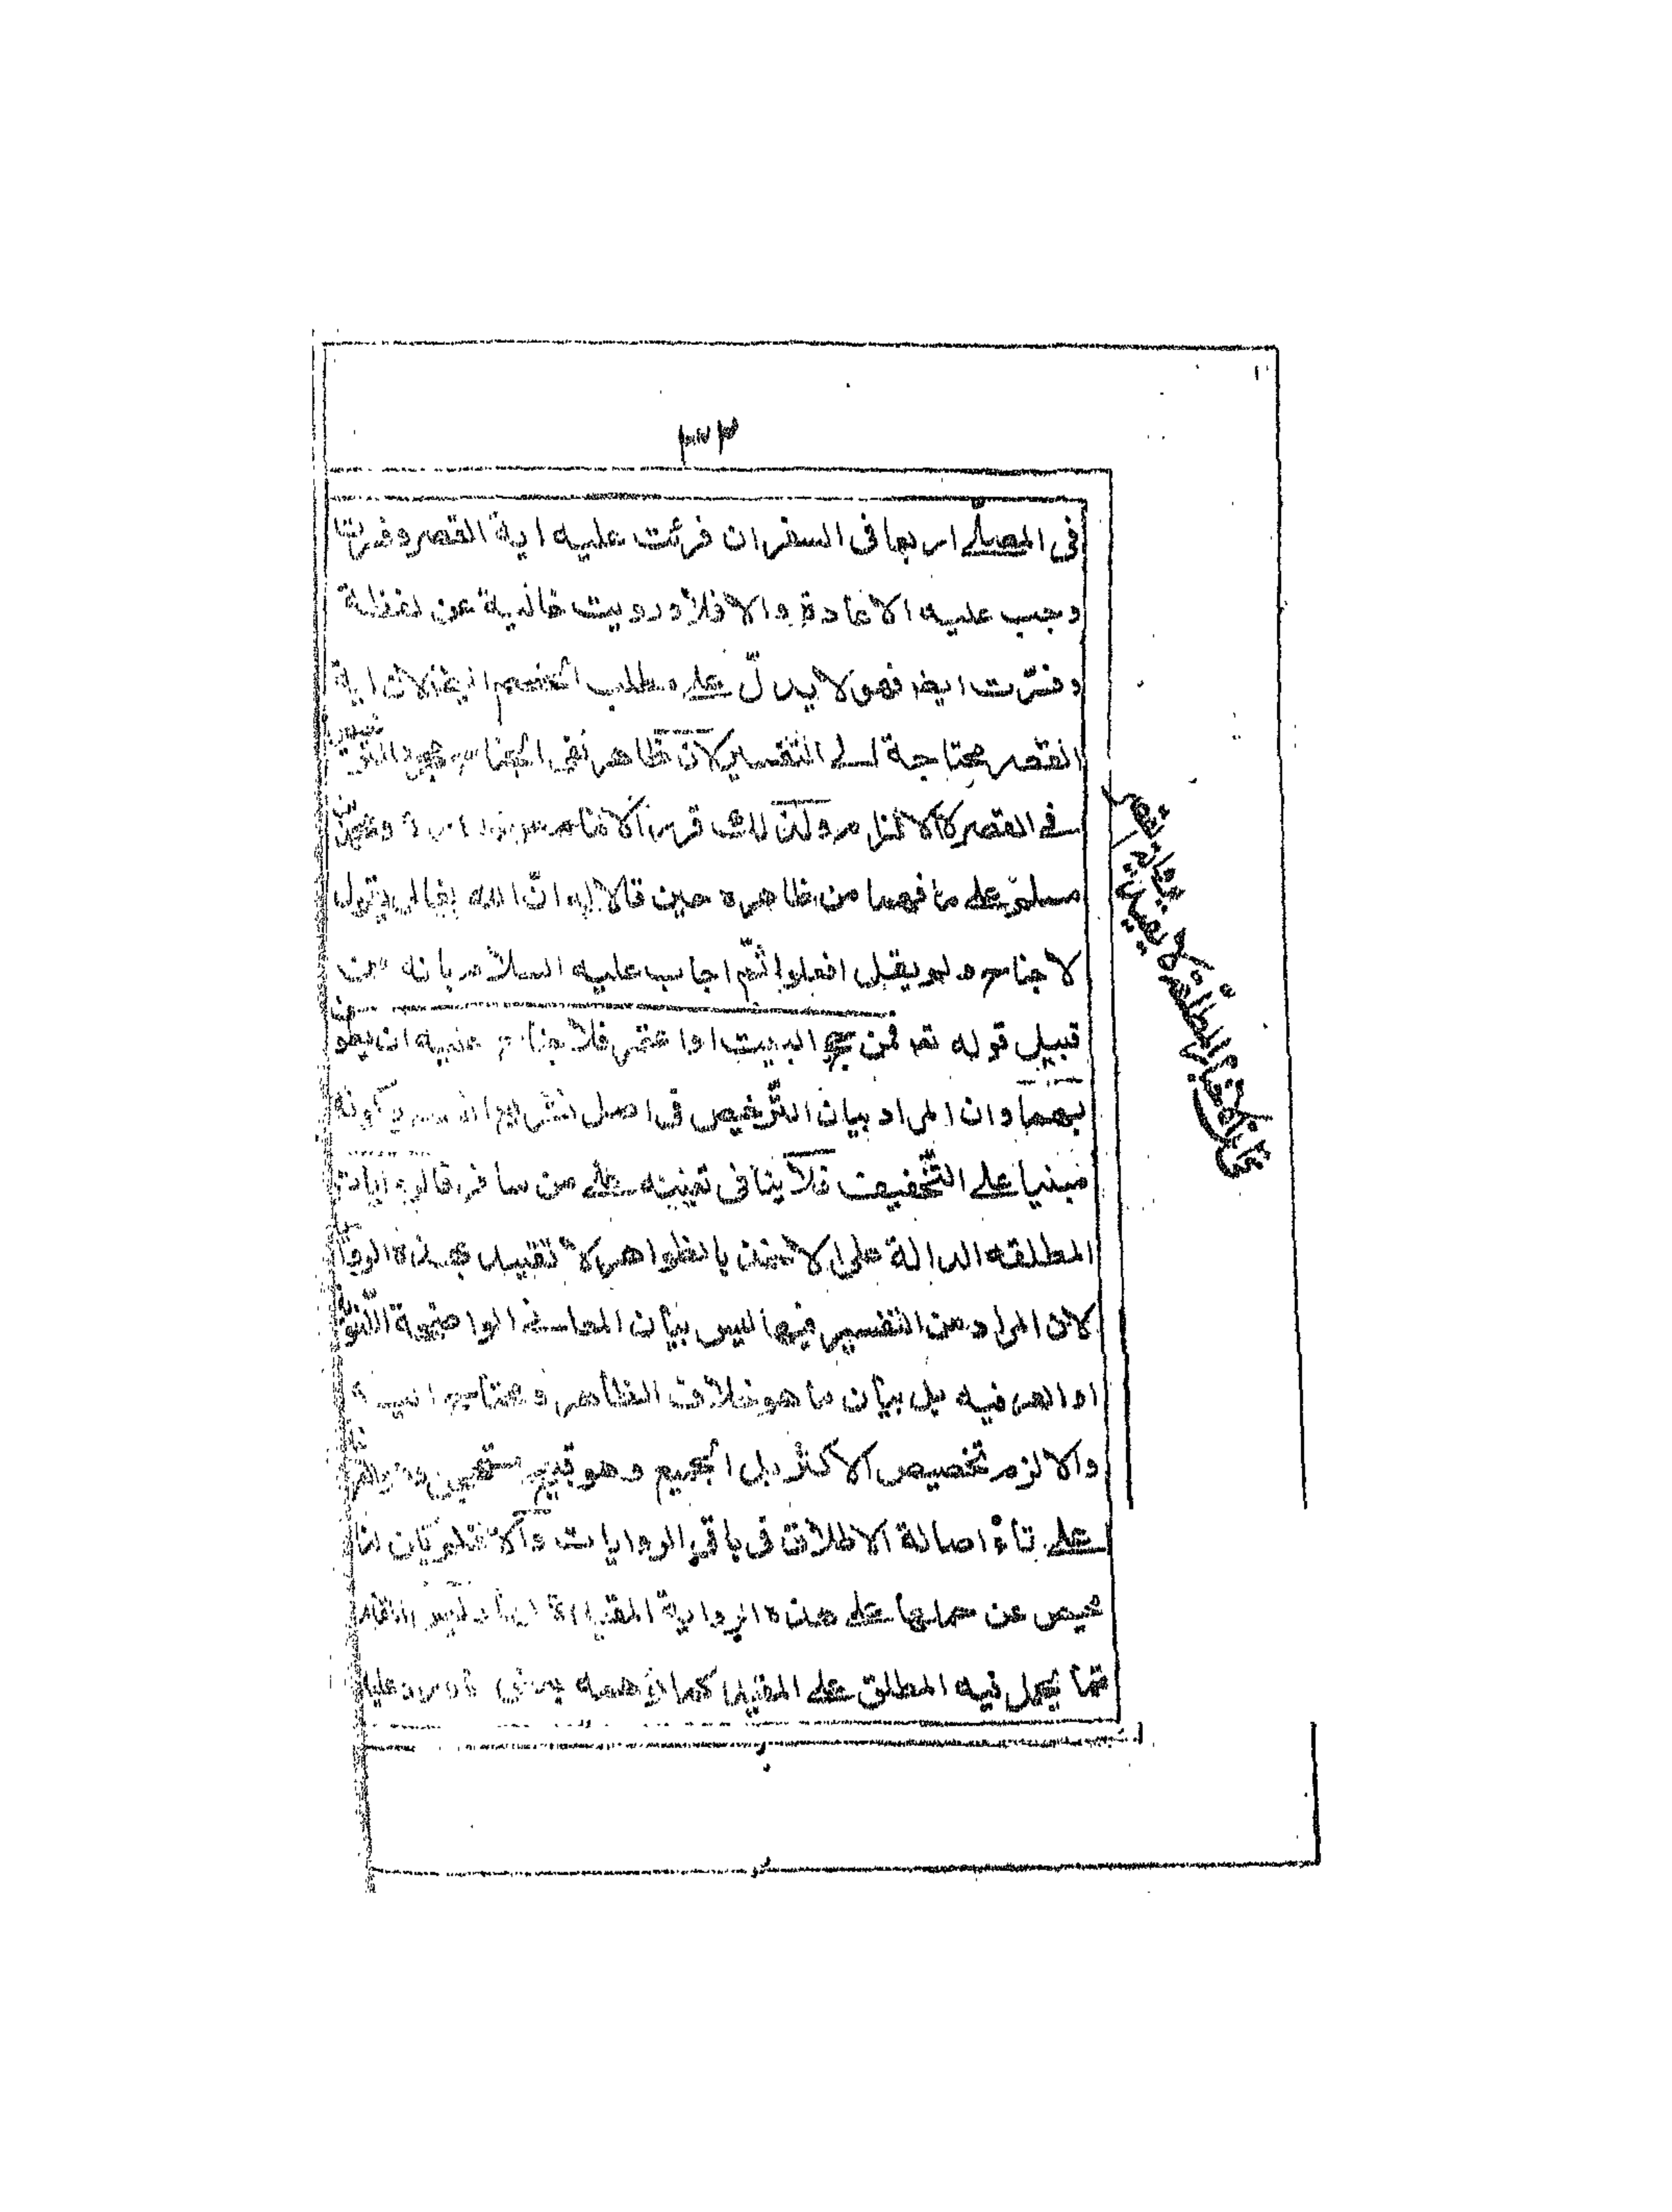 ٣٣٣
فى المصلّے اربعا فى السفر ان قرئت عليه اية القصر وفسرت
وجب عليه الاعادة والا فلا ورويت خالية عن لفظة
وفسّرت ايضا فهو لا يدلّ علے مطلب الخصم ايضا لان اية
القصر محتاجة الے التفسير لانّ ظاهر نفى الجناح هو
فے القصر لا الالزام ولكن لك قرر الامام زرارة و محمد بن
مسلم علے ما فهما من ظاهره حين قالا له انّ الله تعالى يقول
لا جناح ولم يقل افعلوا ثمّ اجاب عليه السلام بانه من
قبيل قوله تعه فمن حج البيت او اعتمر فلا جناح عليه ان يطوف
بهما وان المراد بيان التّرخيص فى اصل تشريع القصر وكونه
مبنيا علے التّخفيف فلا ينافى تعيينه علے من سافر فالروايات
المطلقه الدالة على الاخذ بالظواهر لا تقييد بهذه الرواية
لان المراد من التفسير فيها ليس بيان المعانے الواضحة اللّغويّة
او العرفيه بل بيان ما هو خلاف الظاهر ومحتاج اليه
والا لزم تخصيص الاكثر بل الجميع وهو قبيح مستهجن
علے اصالة الاطلاق فى باقى الروايات والا فلو كان لنا
محيص عن حملها علے هذه الرواية المقيدة
ممّا يحمل فيه المطلق علے المقيد كما توهمه بعض